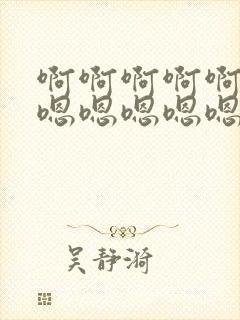 啊啊啊啊啊
嗯嗯嗯嗯嗯
吴静漪